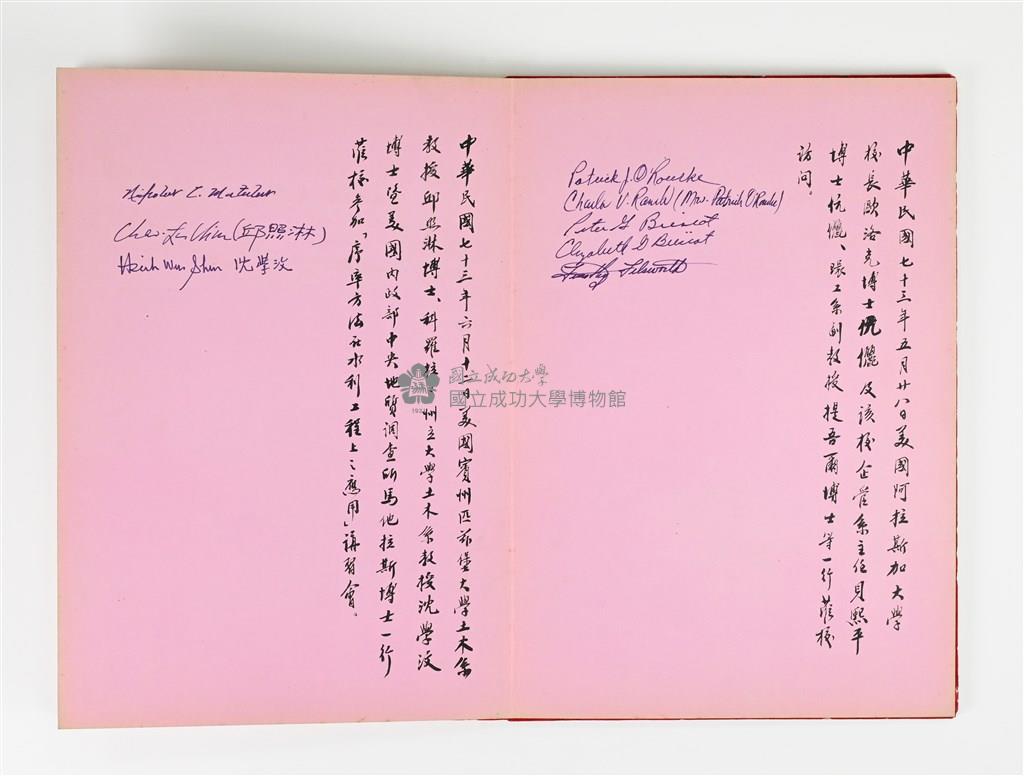 中華民國七十三年五月廿八日美國阿拉斯加大學
校長歐洛克博士伉儷及該校企管系主任貝熙平
博士伉儷、環工系副教授提吾爾博士等一行蒞校
訪問。
Patrick J. O'Rourke
(Mrs. Patrick O'Rourke)
Peter G
Elizabeth G
Timothy
中華民國七十三年六月十一日美國賓州匹茲堡大學土木系
教授邱照淋博士、科羅拉 州立大學土木系教授沈學汶
博士暨美國內政部中央地質調查所馬他拉斯博士一行
蒞校參加「序率方法在水利工程上之應用」講習會。
Nicholas C.
Chao-Lin Chiu (邱照淋)
Hsieh Wen Shen 沈學汶
國立成功大學
國立成功大學博物館